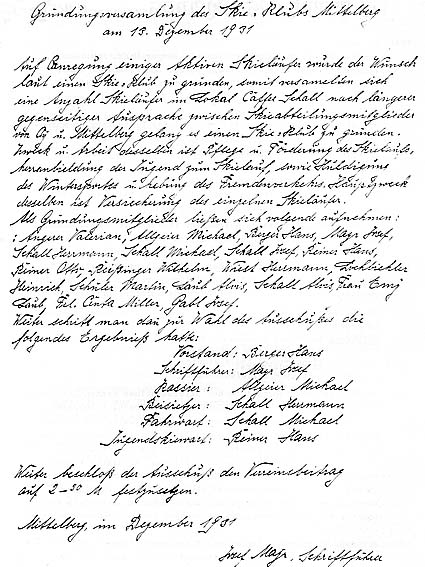 Gründungsversamlung des Skie-Klubs Mittelberg
am 13. Dezember 1931
Auf Anregung einiger aktiven Skieläufer wurde der Wunsch
laut einen Skie-Klub zu gründen, somit versamelden sich
eine Anzahl Skieläufer im Lokal Caffee Schall nach längerer
gegenseitiger Aussprache zwischen Skieabteilungsmitglieder
von Oy u. Mittelberg gelang es einen Skie-Klub zu gründen.
Zweck u. Arbeit desselben ist Pflege u. Förderung des Skielaufs,
heranbildung der Jugend zum Skielauf, sowie Huldigung
des Wintersportes u. hebung des Fremdenverkehrs. Hauptzweck
desselben ist Versicherung des einzelnen Skieläufer.
Als Gründungsmitglieder ließen sich volgende aufnehmen:
: Angerer Valerian, Allgeier Michael, Berger Hans, Mayr Josef,
Schall Herrmann, Schall Michael, Schall Josef, Reiner Hans,
Reiner Otto, Wilhelm, Herrmann,
Heinrich, Schüler Martin, Alois, Schall Alois, Frau
Frl. Miller, Gabl Josef.
Weiter schritt man dan zur Wahl des Ausschußes die
folgendes Ergebnieß hatte:
Vorstand: Berger Hans
Schriftführer: Mayr Josef
Kassier: Allgeier Michael
Beisietzer: Schall Herrmann
Fahrwart: Schall Michael
Jugendskiewart: Reiner Hans
Weiter beschloß der Ausschuß den Vereinsbeitrag
auf 2-50 M festzusetzen.
Mittelberg, im Dezember 1931
Josef Mayr, Schriftführer